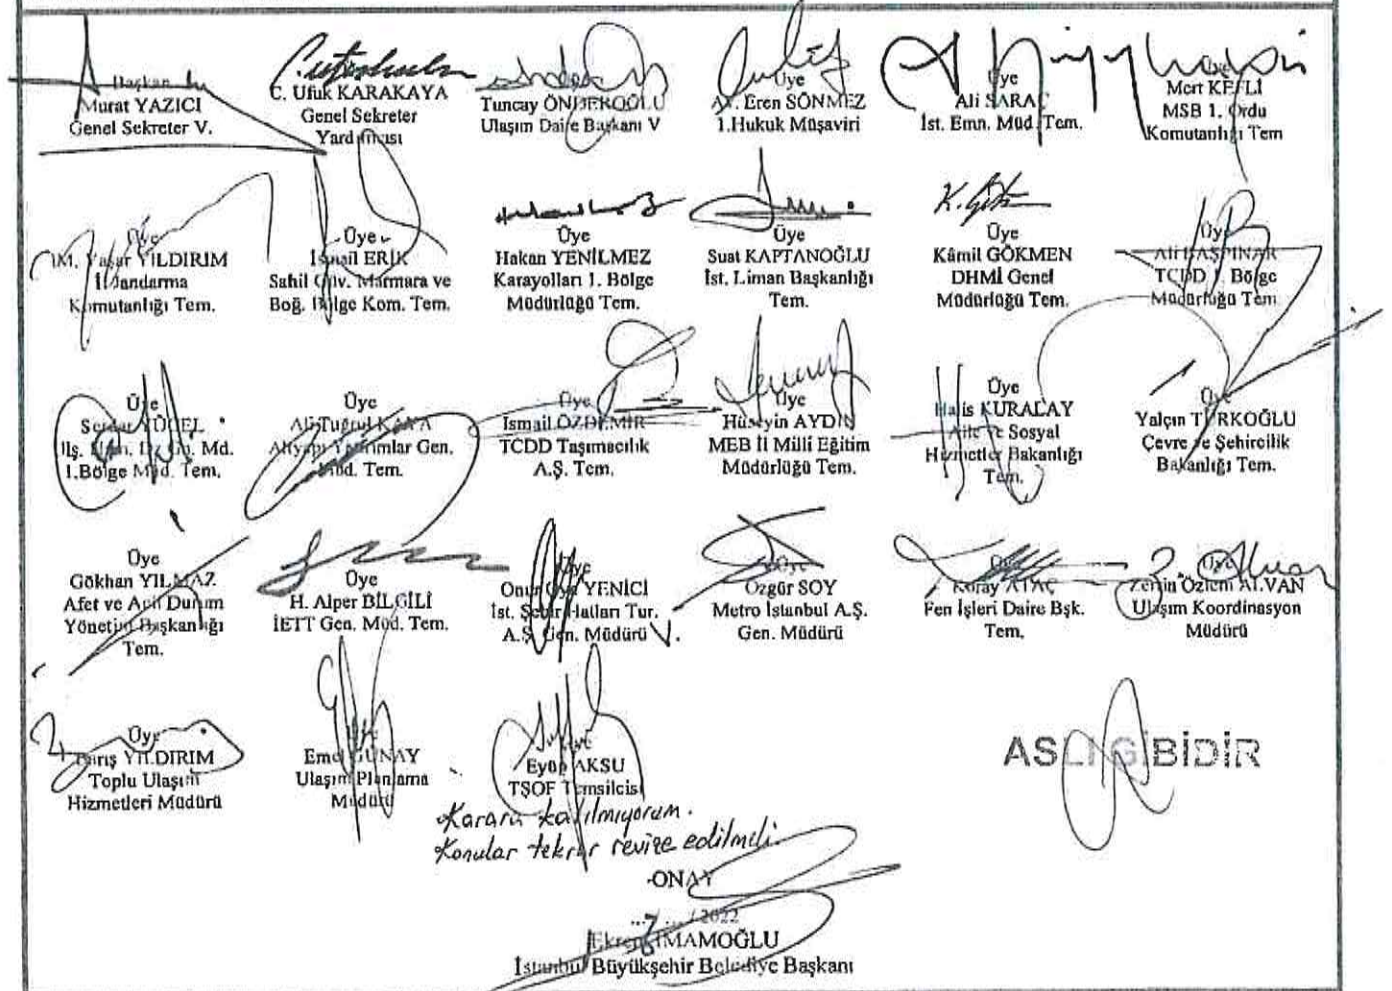 Başkan
Murat YAZICI
Genel Sekreter V.
C. Ufuk KARAKAYA
Genel Sekreter
Yardımcısı
Tuncay ÖNDEROĞLU
Ulaşım Daire Başkanı V
Üye
Av. Eren SÖNMEZ
1.Hukuk Müşaviri
Üye
Ali SARAÇ
İst. Emn. Müd. Tem.
Üye
Mert KEFLİ
MSB 1. Ordu
Komutanlığı Tem
Üye
M. Yaşar YILDIRIM
İl Jandarma
Komutanlığı Tem.
Üye
İsmail ERİK
Sahil Güv. Marmara ve
Boğ. Bölge Kom. Tem.
Üye
Hakan YENİLMEZ
Karayolları 1. Bölge
Müdürlüğü Tem.
Üye
Suat KAPTANOĞLU
İst. Liman Başkanlığı
Tem.
K. Gök
Üye
Kâmil GÖKMEN
DHMİ Genel
Müdürlüğü Tem.
Üye
Ali BAŞPINAR
TCDD 1. Bölge
Müdürlüğü Tem
Üye
Serdar YÜCEL
1.Bölge Müd. Tem.
Üye
Ali Tuğrul KAYA
Altyapı Yatırımlar Gen.
Müd. Tem.
Üye
İsmail ÖZDEMİR
TCDD Taşımacılık
A.Ş. Tem.
Üye
Hüseyin AYDIN
MEB İl Milli Eğitim
Müdürlüğü Tem.
Üye
Halis KURALAY
Aile ve Sosyal
Hizmetler Bakanlığı
Tem.
Üye
Yalçın TÜRKOĞLU
Çevre ve Şehircilik
Bakanlığı Tem.
Üye
Gökhan YILMAZ
Afet ve Acil Durum
Yönetim Başkanlığı
Tem.
Üye
H. Alper BİLGİLİ
İETT Gen. Müd. Tem.
Üye
YENİCİ
İst. Şehir Hatları Tur.
A.Ş. Gen. Müdürü V.
Üye
Özgür SOY
Metro İstanbul A.Ş.
Gen. Müdürü
Üye
Koray ATAÇ
Fen İşleri Daire Bşk.
Tem.
Üye
Zerrin Özlem ALVAN
Ulaşım Koordinasyon
Müdürü
Üye
Barış YILDIRIM
Toplu Ulaşım
Hizmetleri Müdürü
Üye
Emel GÜNAY
Ulaşım Planlama
Müdürü
Üye
Eyüp AKSU
TŞOF Temsilcisi
ASLI GİBİDİR
Karara katılmıyorum.
Konular tekrar revize edilmeli.
ONAY
.../.../2022
Ekrem İMAMOĞLU
İstanbul Büyükşehir Belediye Başkanı